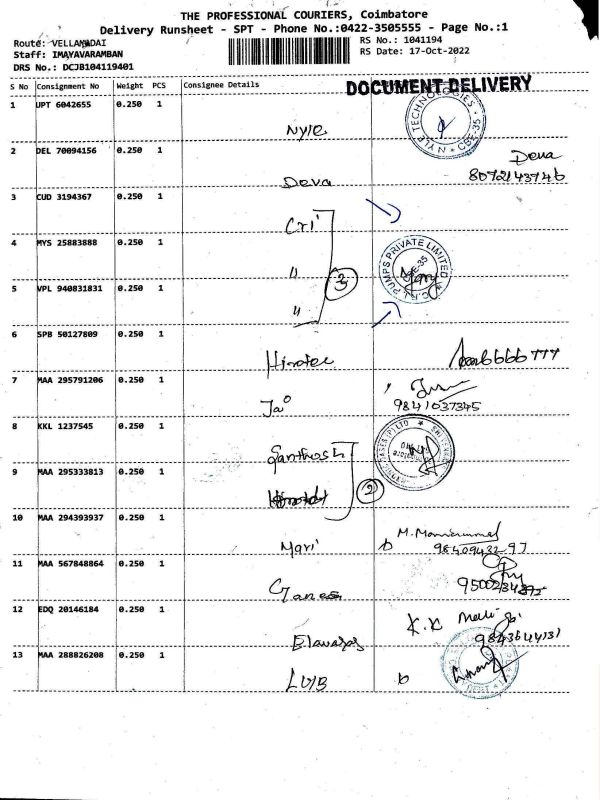 THE PROFESSIONAL COURIERS, Coimbatore
Delivery Runsheet - SPT - Phone No.:0422-3505555 - Page No.:1
Route: VELLANADAI
RS No.: 1041194
Staff: IMAYAVARAMBAN
RS Date: 17-Oct-2022
DRS No.: DCJB104119401
S No Consignment No Weight PCS Consignee Details
DOCUMENT DELIVERY
1 UPT 6042655 0.250 1
Nyle
NYLE TECHNOLOGIES * CBE-35 *
2 DEL 70094156 0.250 1
Deva
Deva
8072143746
3 CUD 3194367 0.250 1
Cri
4 MYS 25883888 0.250 1
"
3
C.R.I. PUMPS PRIVATE LIMITED
CBE-35
5 VPL 940831831 0.250 1
"
6 SPB 50127809 0.250 1
7 MAA 295791206 0.250 1
9841037345
8 KKL 1237545 0.250 1
Santhosh
9 MAA 295333813 0.250 1
2
10 MAA 294393937 0.250 1
Mari
9840943297
11 MAA 567848864 0.250 1
12 EDQ 20146184 0.250 1
K.K
13 MAA 288826208 0.250 1